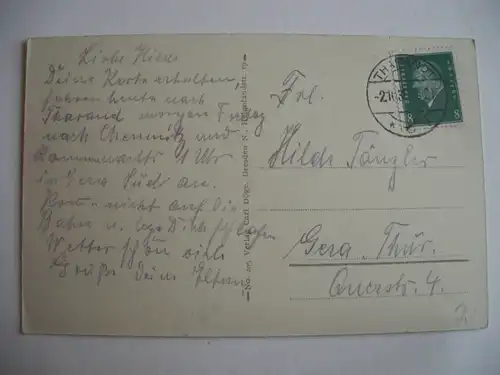 Liebe Hilde
Deine Karte erhalten,
fahren heute nach
Tharand morgen Freitag
nach Chemnitz und
kommen nachts 11 Uhr
in Gera Süd an.
Komm nicht auf die
Bahn u. lege Dich schlafen
Wetter schön viele
Grüße Deine Eltern
No. 205 Verlag Carl Döge, Dresden N.
Frl.
Hilde Tängler
Gera, Thür.
Querstr. 4.
8 8